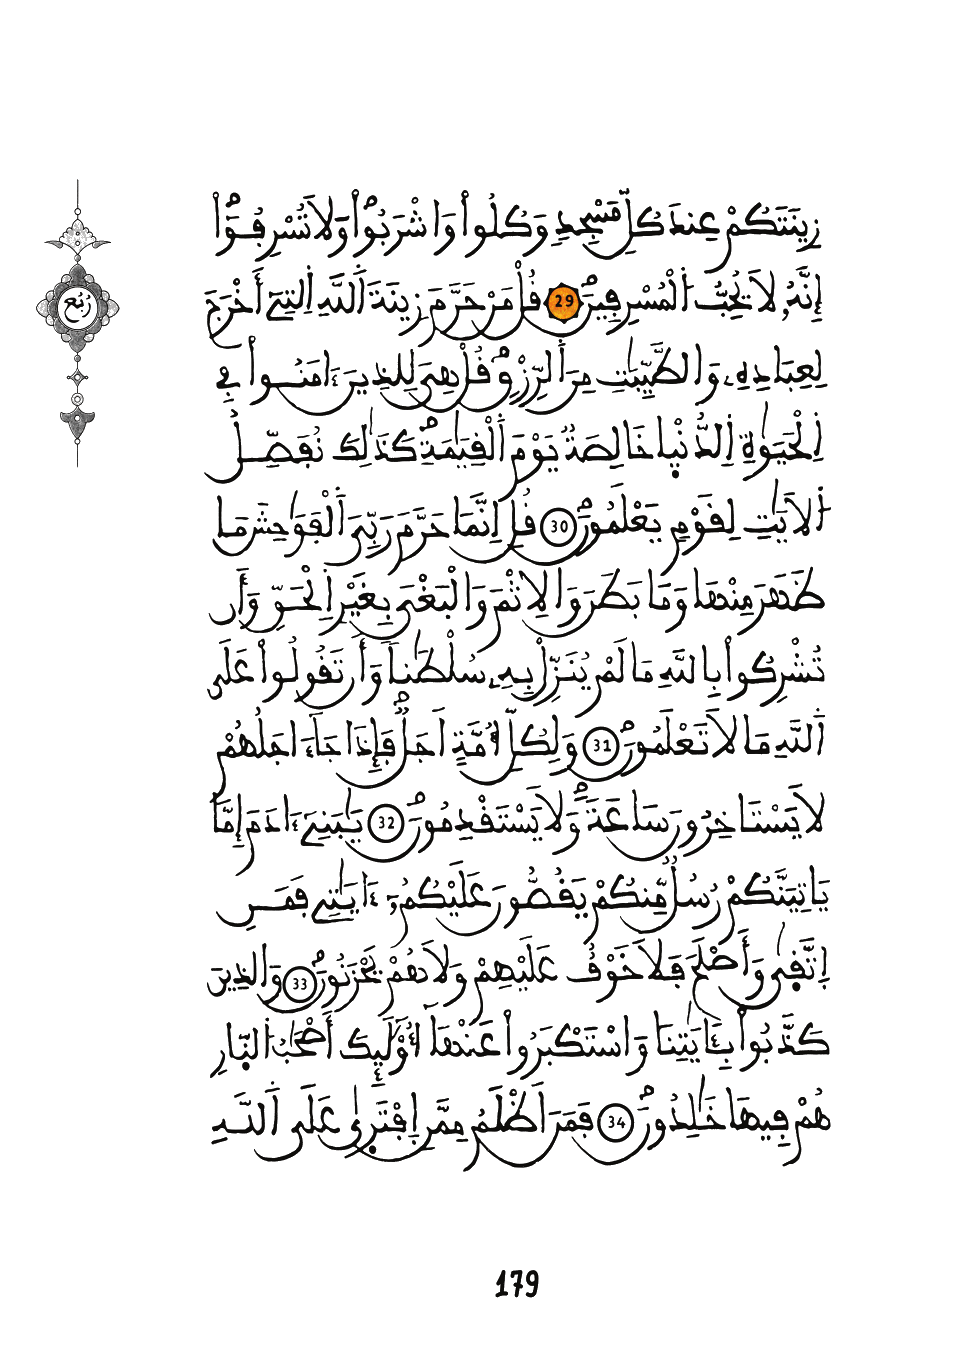 زِينَتَكُمْ عِندَ كُلِّ مَسْجِدٍ وَكُلُوا۟ وَاشْرَبُوا۟ وَلَا تُسْرِفُوٓا۟
إِنَّهُۥ لَا يُحِبُّ اُ۬لْمُسْرِفِينَۖ 29 قُلْ مَنْ حَرَّمَ زِينَةَ اَ۬للَّهِ اِ۬لتِےٓ أَخْرَجَ
لِعِبَادِهِۦ وَالطَّيِّبَٰتِ مِنَ اَ۬لرِّزْقِۖ قُلْ هِيَ لِلذِينَ ءَامَنُوا۟ فِے
اِ۬لْحَيَوٰةِ اِ۬لدُّنْي۪ا خَالِصَةٞ يَوْمَ اَ۬لْقِيَٰمَةِۖ كَذَٰلِكَ نُفَصِّلُ
اُ۬لَايَٰتِ لِقَوْمٖ يَعْلَمُونَۖ 30 قُلِ اِنَّمَا حَرَّمَ رَبِّيَ اَ۬لْفَوَٰحِشَ مَا
ظَهَرَ مِنْهَا وَمَا بَطَنَ وَالِاثْمَ وَالْبَغْيَ بِغَيْرِ اِ۬لْحَقِّ وَأَن
تُشْرِكُوا۟ بِاللَّهِ مَا لَمْ يُنَزِّلْ بِهِۦ سُلْطَٰناٗ وَأَن تَقُولُوا۟ عَلَى
اَ۬للَّهِ مَا لَا تَعْلَمُونَۖ 31 وَلِكُلِّ أُمَّةٍ اَجَلٞۖ فَإِذَا جَآءَ اجَلُهُمْ
لَا يَسْتَاخِرُونَ سَاعَةٗۖ وَلَا يَسْتَقْدِمُونَۖ 32 يَٰبَنِےٓ ءَادَمَ إِمَّا
يَاتِيَنَّكُمْ رُسُلٞ مِّنكُمْ يَقُصُّونَ عَلَيْكُمُۥٓ ءَايَٰتِے فَمَنِ
اِ۪تَّق۪ىٰ وَأَصْلَحَ فَلَا خَوْفٌ عَلَيْهِمْ وَلَا هُمْ يَحْزَنُونَۖ 33 وَالذِينَ
كَذَّبُوا۟ بِـَٔايَٰتِنَا وَاسْتَكْبَرُوا۟ عَنْهَآ أُوْلَٰٓئِكَ أَصْحَٰبُ اُ۬لنّ۪ارِ
هُمْ فِيهَا خَٰلِدُونَۖ 34 فَمَنَ اَظْلَمُ مِمَّنِ اِ۪فْتَر۪ىٰ عَلَى اَ۬للَّهِ
رُبُع
179